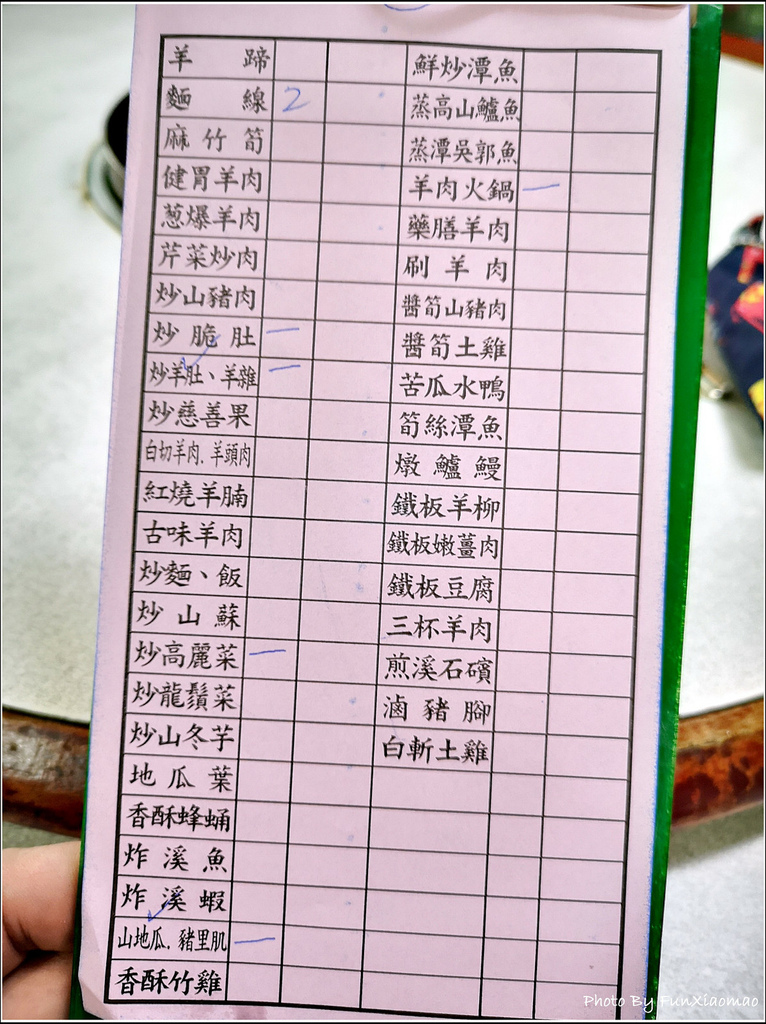 羊蹄
麵線 2
麻竹筍
健胃羊肉
葱爆羊肉
芹菜炒肉
炒山豬肉
炒脆肚 一
炒羊肚、羊雜 ✓ 一
炒慈善果
白切羊肉.羊頭肉
紅燒羊腩
古味羊肉
炒麵、飯
炒山蘇
炒高麗菜 一
炒龍鬚菜
炒山冬芋
地瓜葉
香酥蜂蛹
炸溪魚
炸溪蝦
山地瓜.豬里肌 ✓ 一
香酥竹雞
鮮炒潭魚
蒸高山鱸魚
蒸潭吳郭魚
羊肉火鍋 一
藥膳羊肉
刷羊肉
醬筍山豬肉
醬筍土雞
苦瓜水鴨
筍絲潭魚
燉鱸鰻
鐵板羊柳
鐵板嫩薑肉
鐵板豆腐
三杯羊肉
煎溪石礦
滷豬腳
白斬土雞
Photo By FunXiaomao